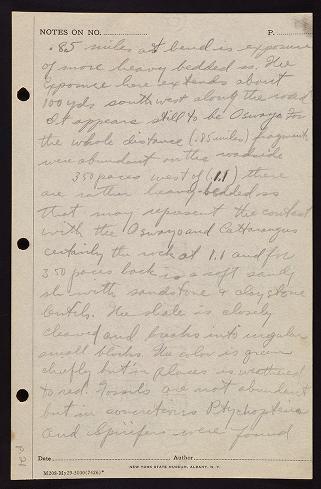 NOTES ON NO. P.
.85 miles at bend is exposure
of more heavy bedded ss. The
exposure here extends about
100 yds southwest along the road
It appears still to be Oswayo for
the whole distance (.85 miles) fragments
were abundant on the roadside
350 paces west of (1.1) there
are rather heavy-bedded ss
that may represent the contact
with the Oswayo and Cattaraugus
certainly the rock at 1.1 and for
350 paces back is a soft sandy
sh with sandstone & claystone
lentils. The slate is closely
cleaved and breaks into irregular
small blocks. The color is green
chiefly but in places is weathered
to red. Fossils are not abundant
but in concretions Ptychopteria
and Spirifers were found
Date Author
NEW YORK STATE MUSEUM, ALBANY, N. Y.
M20S-My29-3000(7426)*
P.21